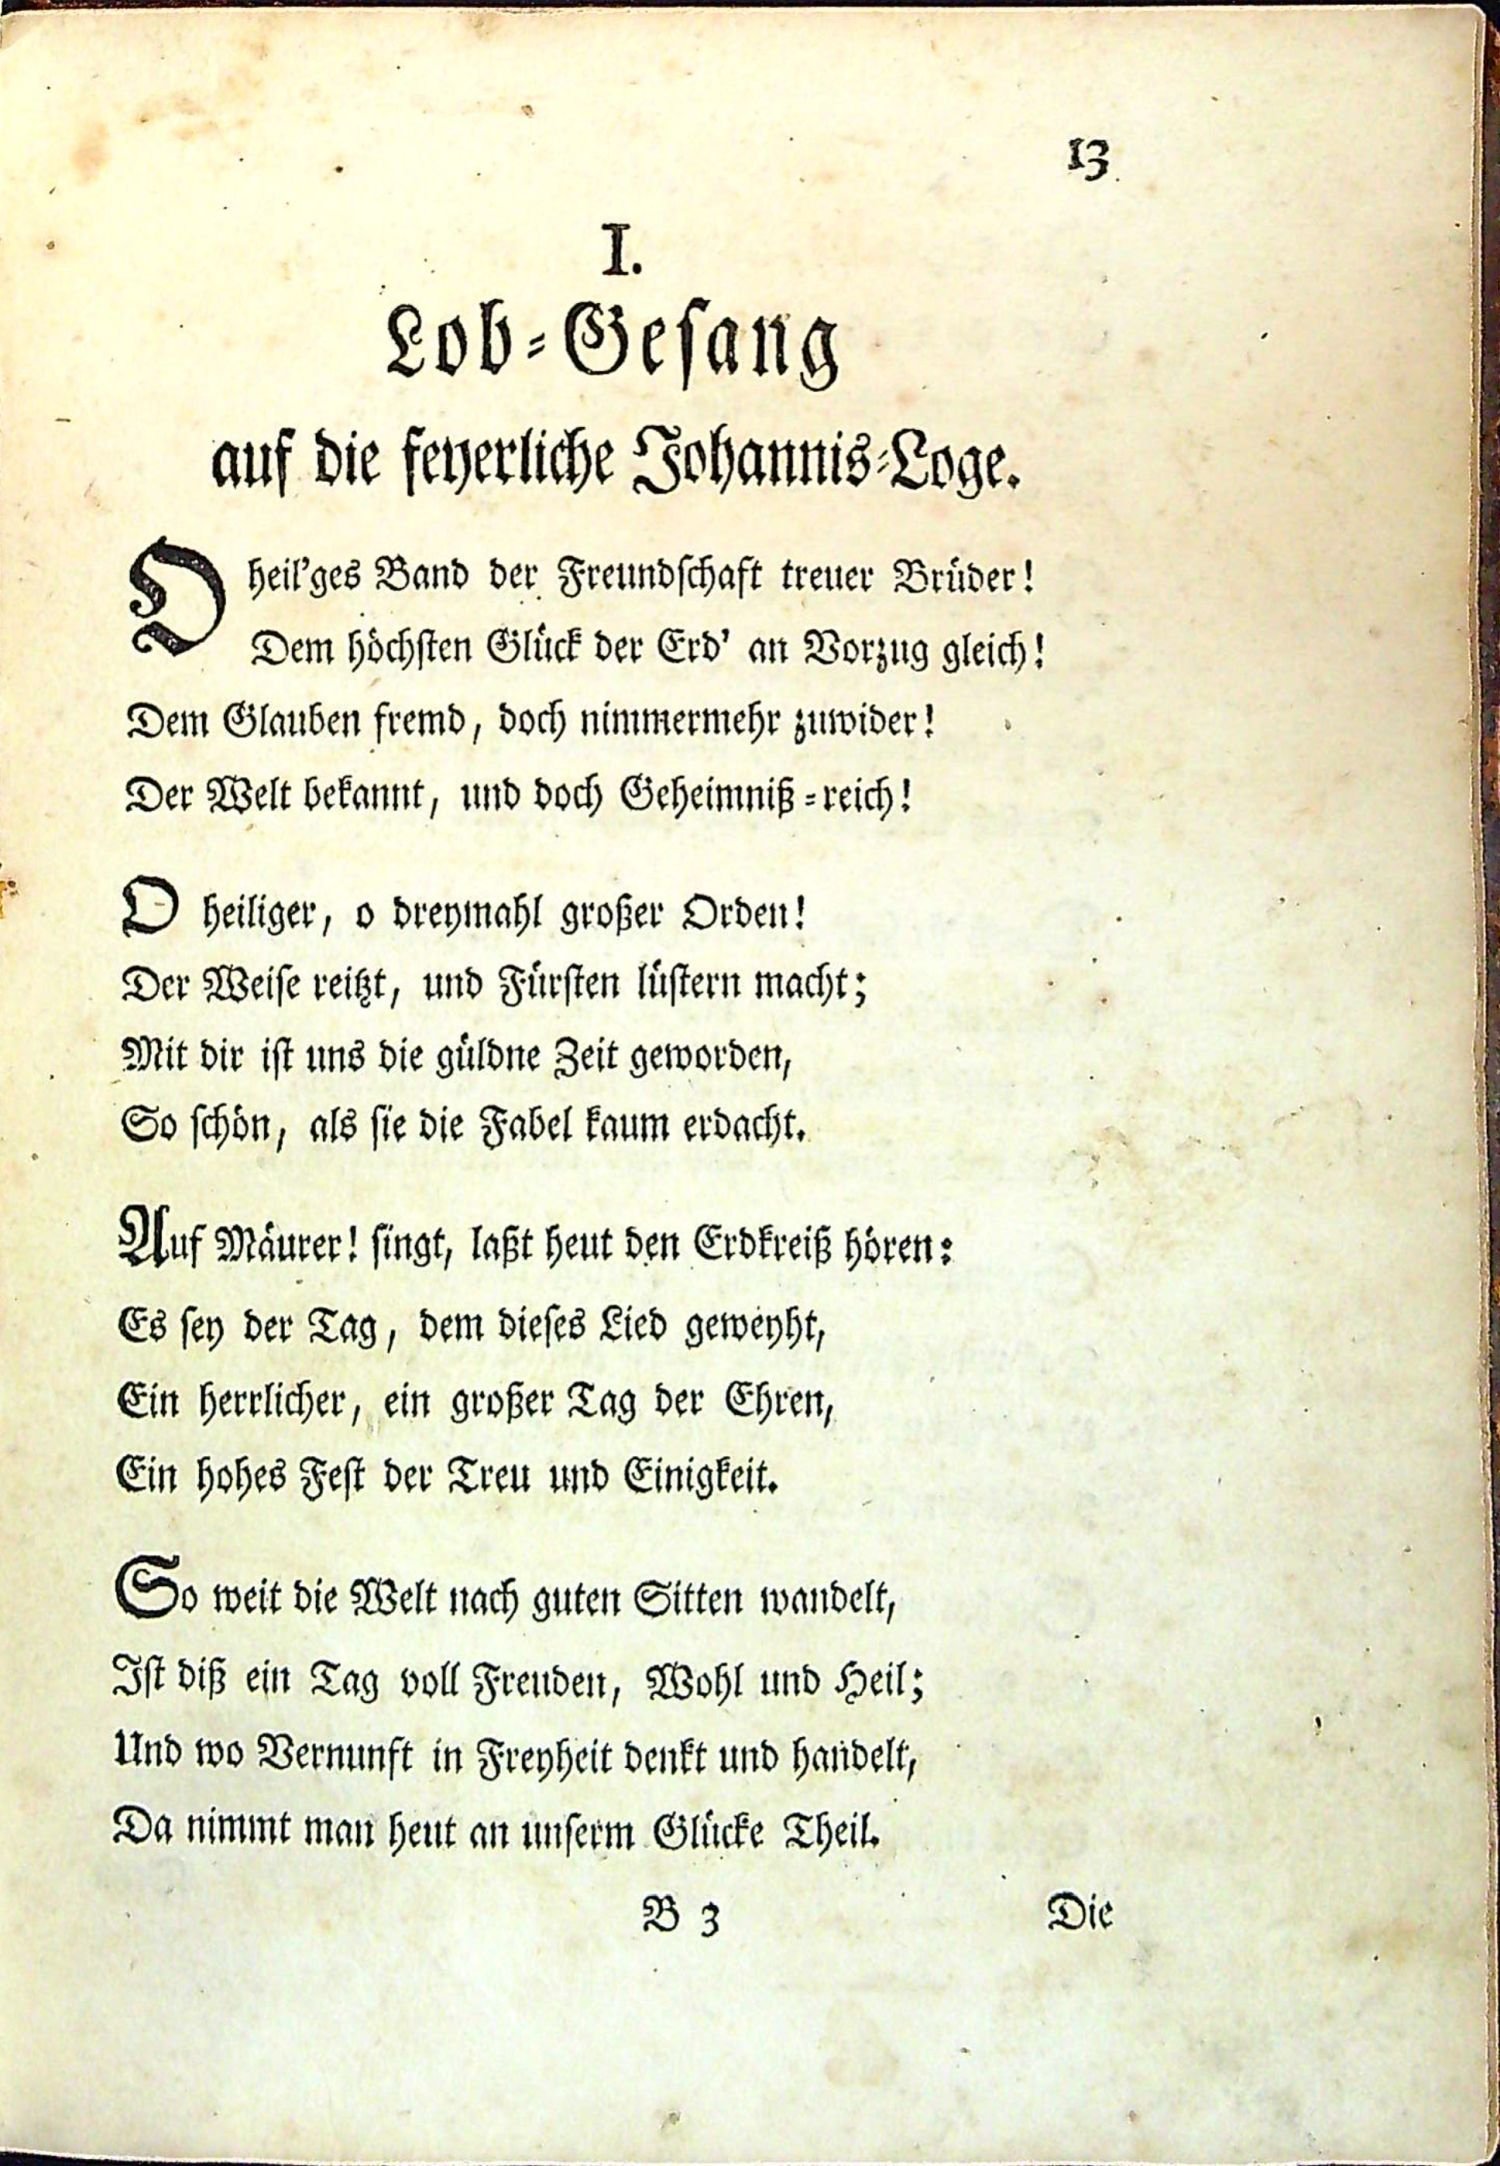 13
I.
Lob-Gesang
auf die feyerliche Johannis-Loge.
O heil'ges Band der Freundschaft treuer Brüder!
Dem höchsten Glück der Erd' an Vorzug gleich!
Dem Glauben fremd, doch nimmermehr zuwider!
Der Welt bekannt, und doch Geheimniß-reich!
O heiliger, o dreymahl großer Orden!
Der Weise reitzt, und Fürsten lüstern macht;
Mit dir ist uns die güldne Zeit geworden,
So schön, als sie die Fabel kaum erdacht.
Auf Mäurer! singt, laßt heut den Erdkreiß hören:
Es sey der Tag, dem dieses Lied geweyht,
Ein herrlicher, ein großer Tag der Ehren,
Ein hohes Fest der Treu und Einigkeit.
So weit die Welt nach guten Sitten wandelt,
Ist diß ein Tag voll Freuden, Wohl und Heil;
Und wo Vernunft in Freyheit denkt und handelt,
Da nimmt man heut an unserm Glücke Theil.
B 3 Die